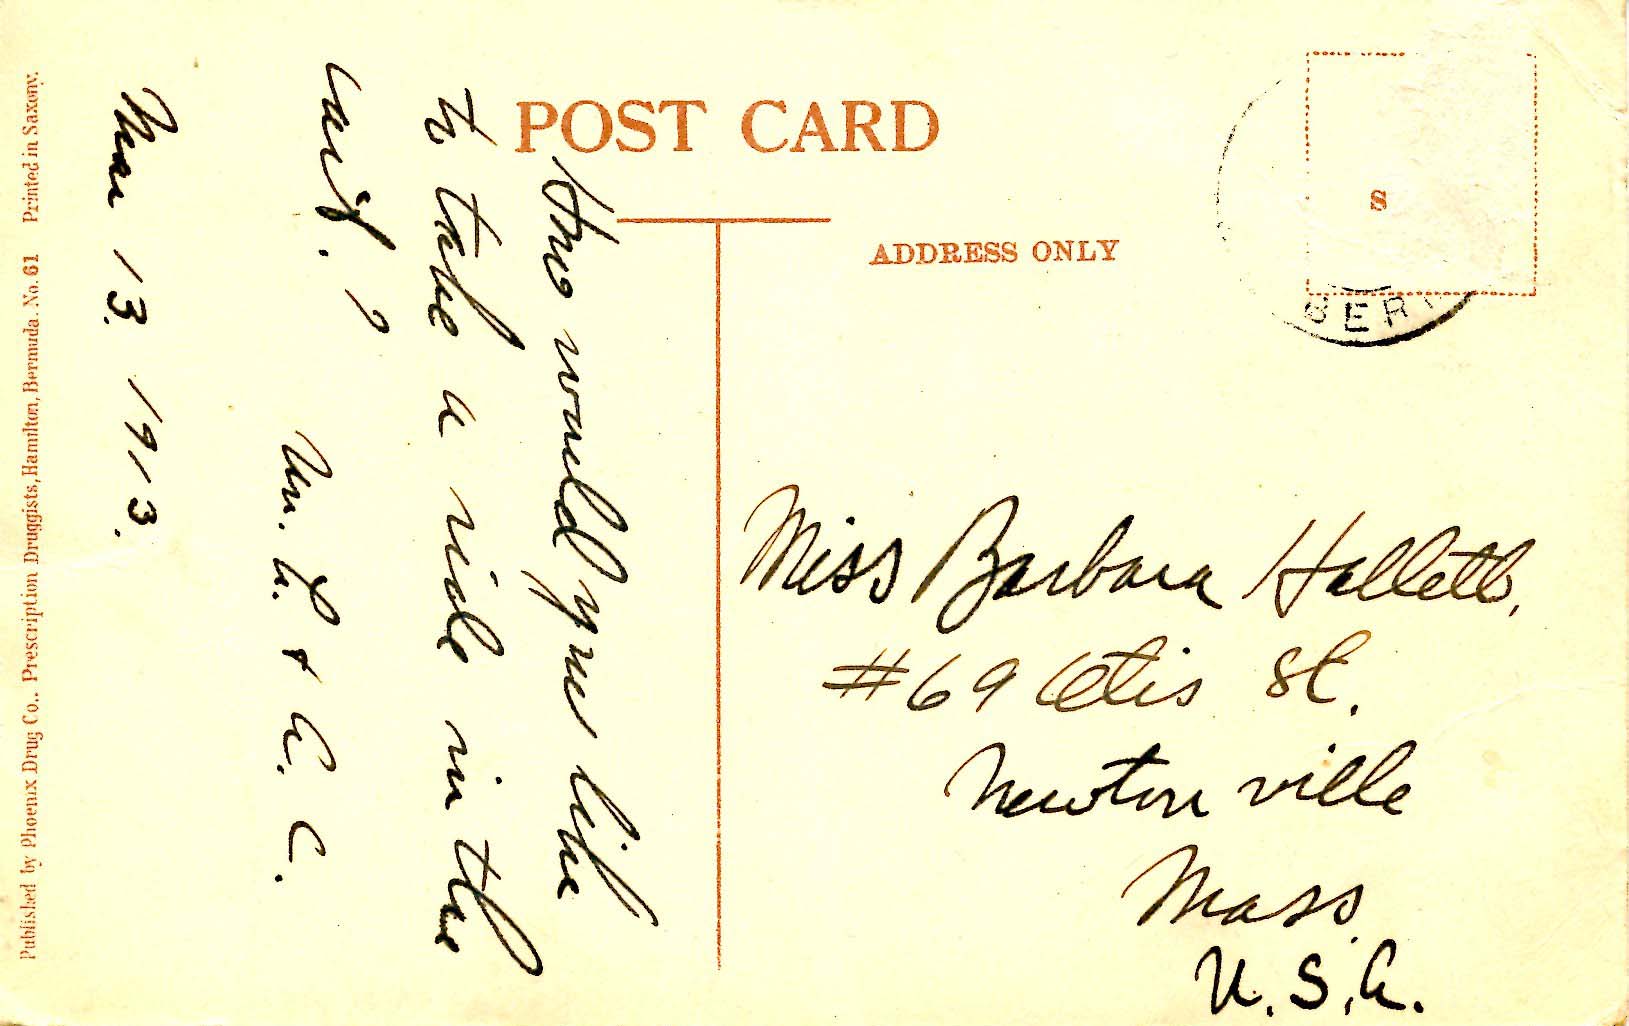 POST CARD
ADDRESS ONLY
S
BER
How would you like
to take a ride in the
cart. ?
&
Mar 13. 1913.
Miss Barbara Hallett,
#69 Otis St.
Newtonville
Mass.
U.S.A.
Published by Phoenix Drug Co., Prescription Druggists, Hamilton, Bermuda. No. 61 Printed in Saxony.